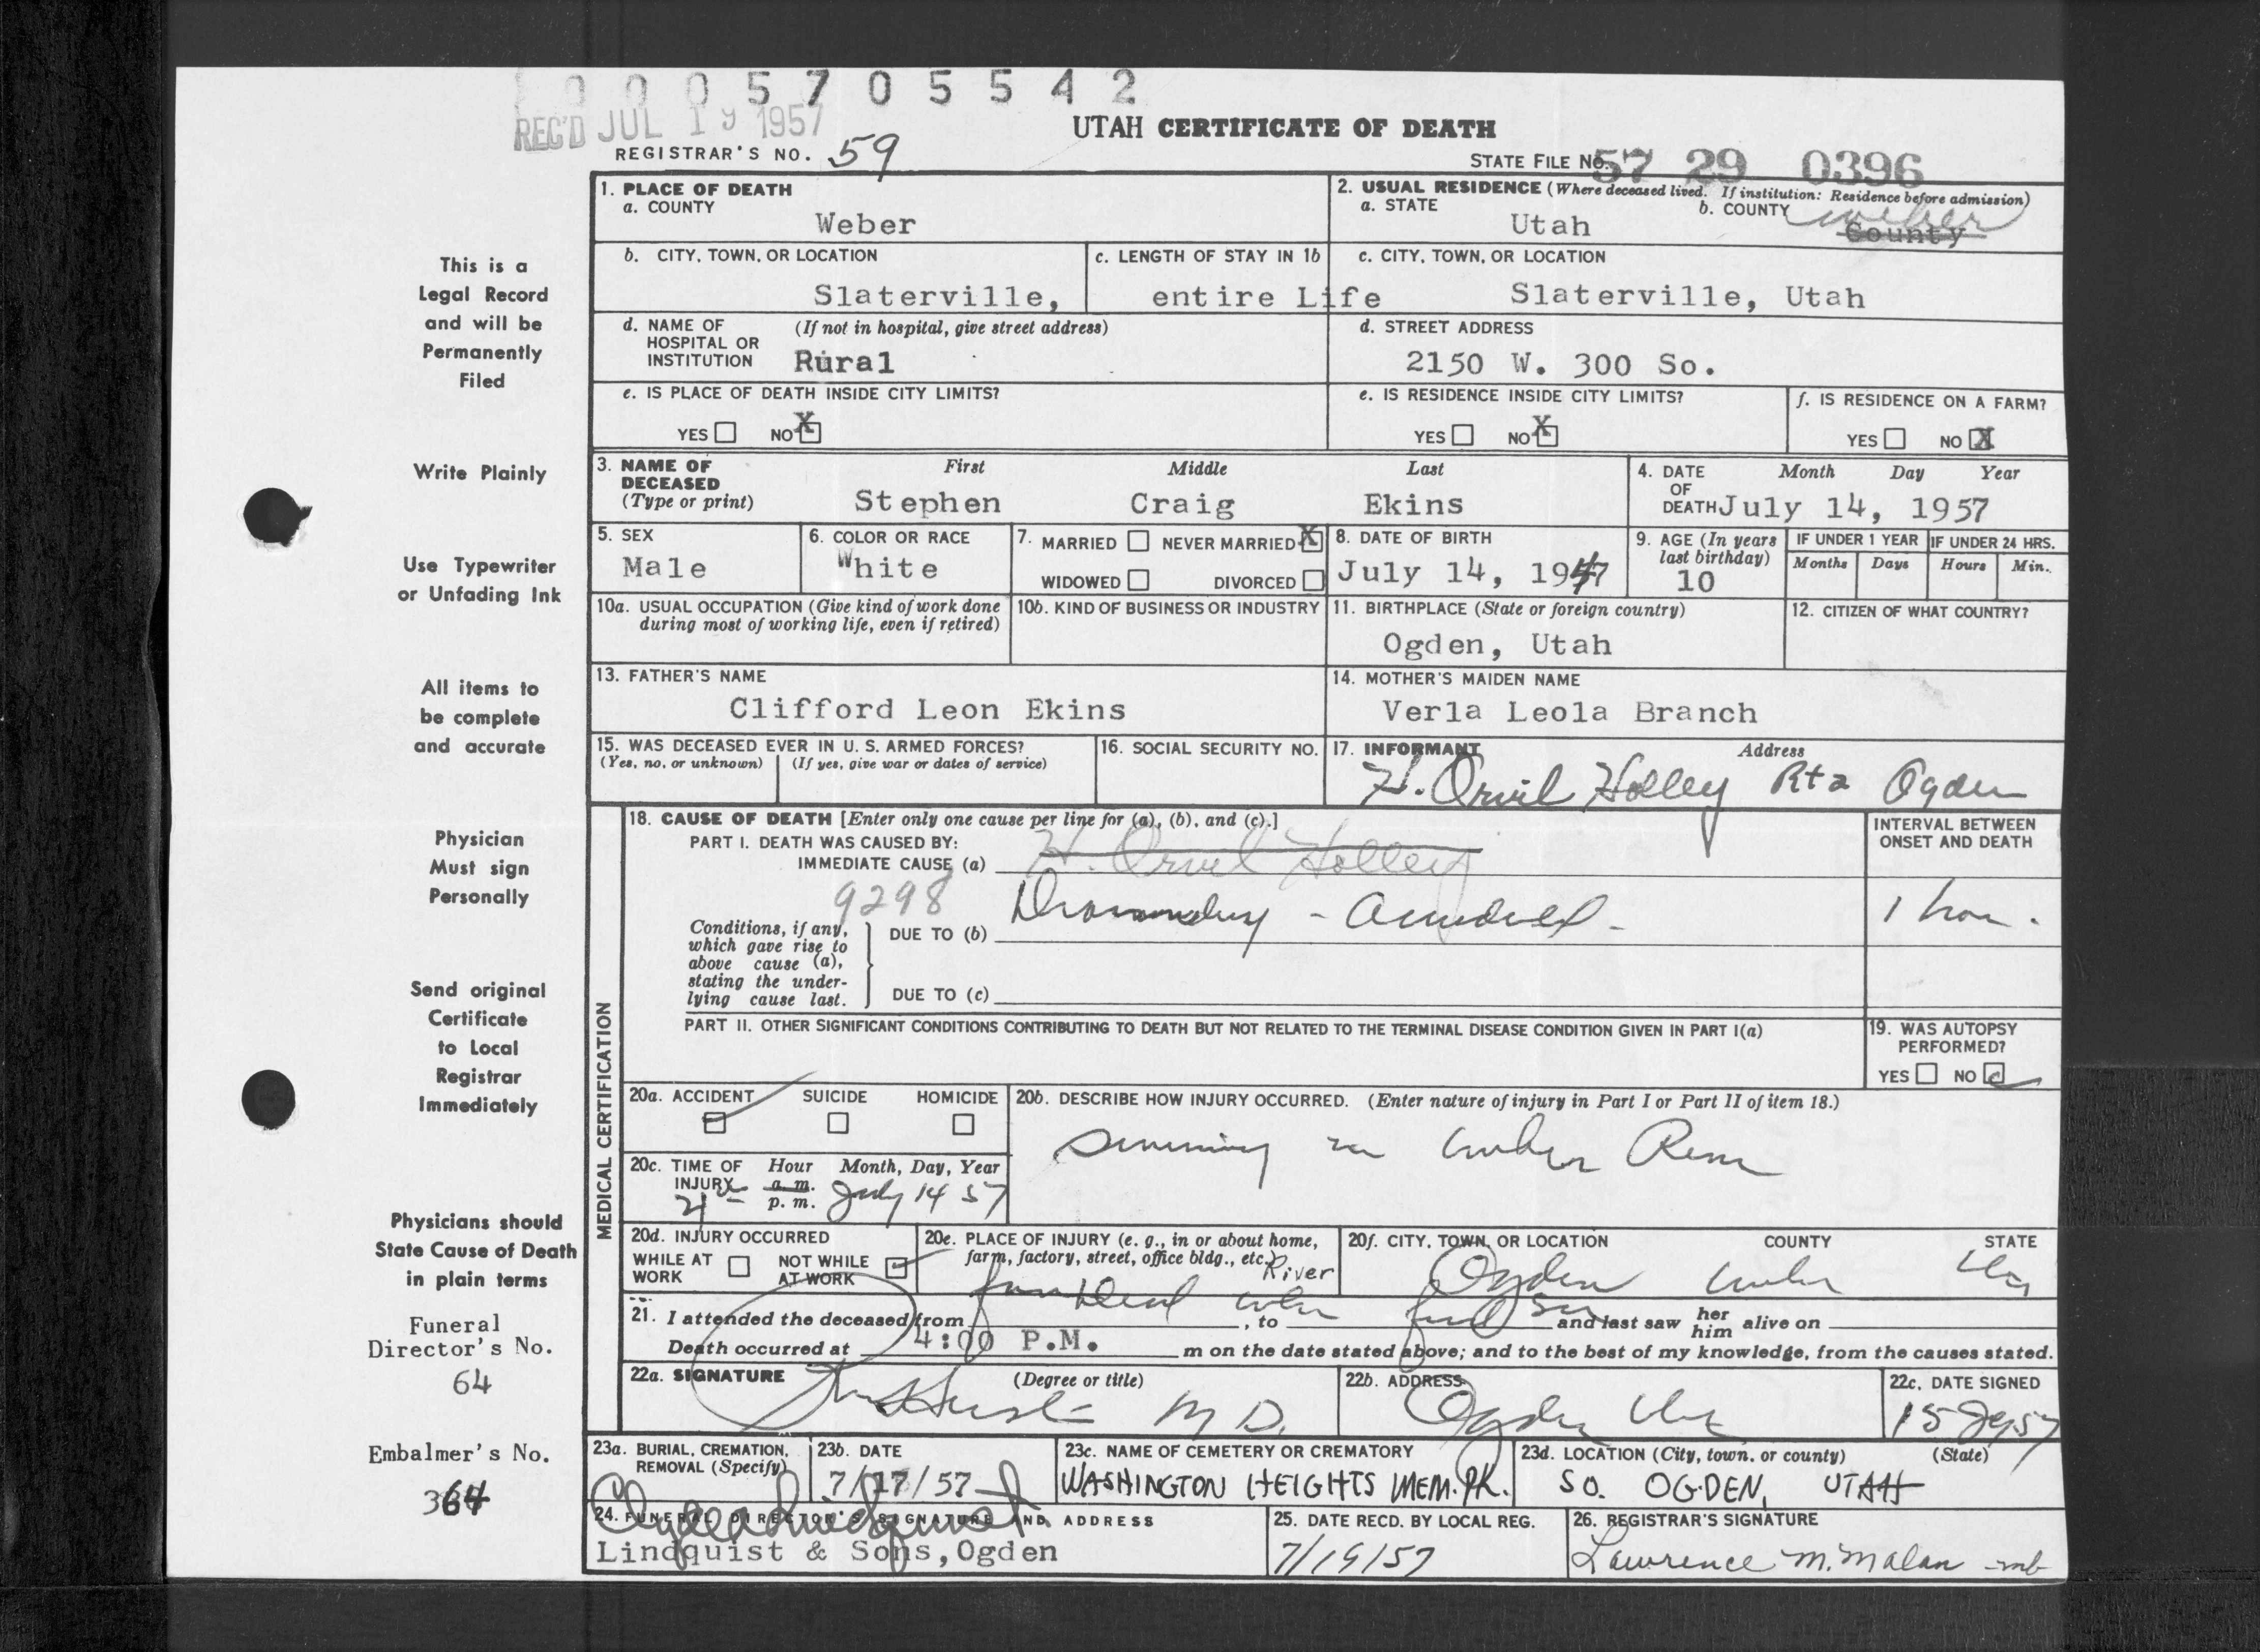 0 0 0 5 7 0 5 5 4 2
REC'D JUL 19 1957
UTAH CERTIFICATE OF DEATH
REGISTRAR'S NO. 59
STATE FILE NO. 57 29 0396
1. PLACE OF DEATH
a. COUNTY
Weber
2. USUAL RESIDENCE (Where deceased lived. If institution: Residence before admission)
a. STATE
Utah
b. COUNTY Weber
County
b. CITY, TOWN, OR LOCATION
Slaterville,
c. LENGTH OF STAY IN 1b
entire Life
c. CITY, TOWN, OR LOCATION
Slaterville, Utah
d. NAME OF HOSPITAL OR INSTITUTION
(If not in hospital, give street address)
Rural
d. STREET ADDRESS
2150 W. 300 So.
e. IS PLACE OF DEATH INSIDE CITY LIMITS?
YES NO X
e. IS RESIDENCE INSIDE CITY LIMITS?
YES NO X
f. IS RESIDENCE ON A FARM?
YES NO X
3. NAME OF DECEASED
(Type or print)
First Middle Last
Stephen Craig Ekins
4. DATE OF DEATH
Month Day Year
July 14, 1957
5. SEX
Male
6. COLOR OR RACE
White
7. MARRIED NEVER MARRIED X
WIDOWED DIVORCED
8. DATE OF BIRTH
July 14, 1947
9. AGE (In years last birthday)
10
IF UNDER 1 YEAR
Months Days
IF UNDER 24 HRS.
Hours Min.
10a. USUAL OCCUPATION (Give kind of work done during most of working life, even if retired)
10b. KIND OF BUSINESS OR INDUSTRY
11. BIRTHPLACE (State or foreign country)
Ogden, Utah
12. CITIZEN OF WHAT COUNTRY?
13. FATHER'S NAME
Clifford Leon Ekins
14. MOTHER'S MAIDEN NAME
Verla Leola Branch
15. WAS DECEASED EVER IN U. S. ARMED FORCES?
(Yes, no, or unknown) (If yes, give war or dates of service)
16. SOCIAL SECURITY NO.
17. INFORMANT Address
H. Orvil Holley Rt 2 Ogden
MEDICAL CERTIFICATION
18. CAUSE OF DEATH [Enter only one cause per line for (a), (b), and (c).]
PART I. DEATH WAS CAUSED BY:
IMMEDIATE CAUSE (a)
H. Orvil Holley
9298
Drowning - Accidental -
Conditions, if any, which gave rise to above cause (a), stating the underlying cause last.
DUE TO (b)
DUE TO (c)
INTERVAL BETWEEN ONSET AND DEATH
1 hour.
PART II. OTHER SIGNIFICANT CONDITIONS CONTRIBUTING TO DEATH BUT NOT RELATED TO THE TERMINAL DISEASE CONDITION GIVEN IN PART I(a)
19. WAS AUTOPSY PERFORMED?
YES NO
20a. ACCIDENT SUICIDE HOMICIDE
20b. DESCRIBE HOW INJURY OCCURRED. (Enter nature of injury in Part I or Part II of item 18.)
Swimming in Weber River
20c. TIME OF INJURY
Hour Month, Day, Year
a. m.
p. m. July 14 57
20d. INJURY OCCURRED
WHILE AT WORK NOT WHILE AT WORK
20e. PLACE OF INJURY (e. g., in or about home, farm, factory, street, office bldg., etc.)
River
20f. CITY, TOWN, OR LOCATION COUNTY STATE
Ogden Weber Utah
21. I attended the deceased from , to and last saw her him alive on
Dead when first
Death occurred at 4:00 P.M. m on the date stated above; and to the best of my knowledge, from the causes stated.
22a. SIGNATURE (Degree or title)
M D.
22b. ADDRESS
Ogden Utah
22c. DATE SIGNED
15 Jy 57
23a. BURIAL, CREMATION, REMOVAL (Specify)
23b. DATE
7/17/57
23c. NAME OF CEMETERY OR CREMATORY
WASHINGTON HEIGHTS MEM. PK.
23d. LOCATION (City, town, or county) (State)
SO. OGDEN, UTAH
24. FUNERAL DIRECTOR'S SIGNATURE AND ADDRESS
Lindquist & Sons, Ogden
25. DATE RECD. BY LOCAL REG.
7/19/57
26. REGISTRAR'S SIGNATURE
Lawrence M. Malan mb
This is a
Legal Record
and will be
Permanently
Filed
Write Plainly
Use Typewriter
or Unfading Ink
All items to
be complete
and accurate
Physician
Must sign
Personally
Send original
Certificate
to Local
Registrar
Immediately
Physicians should
State Cause of Death
in plain terms
Funeral
Director's No.
64
Embalmer's No.
364